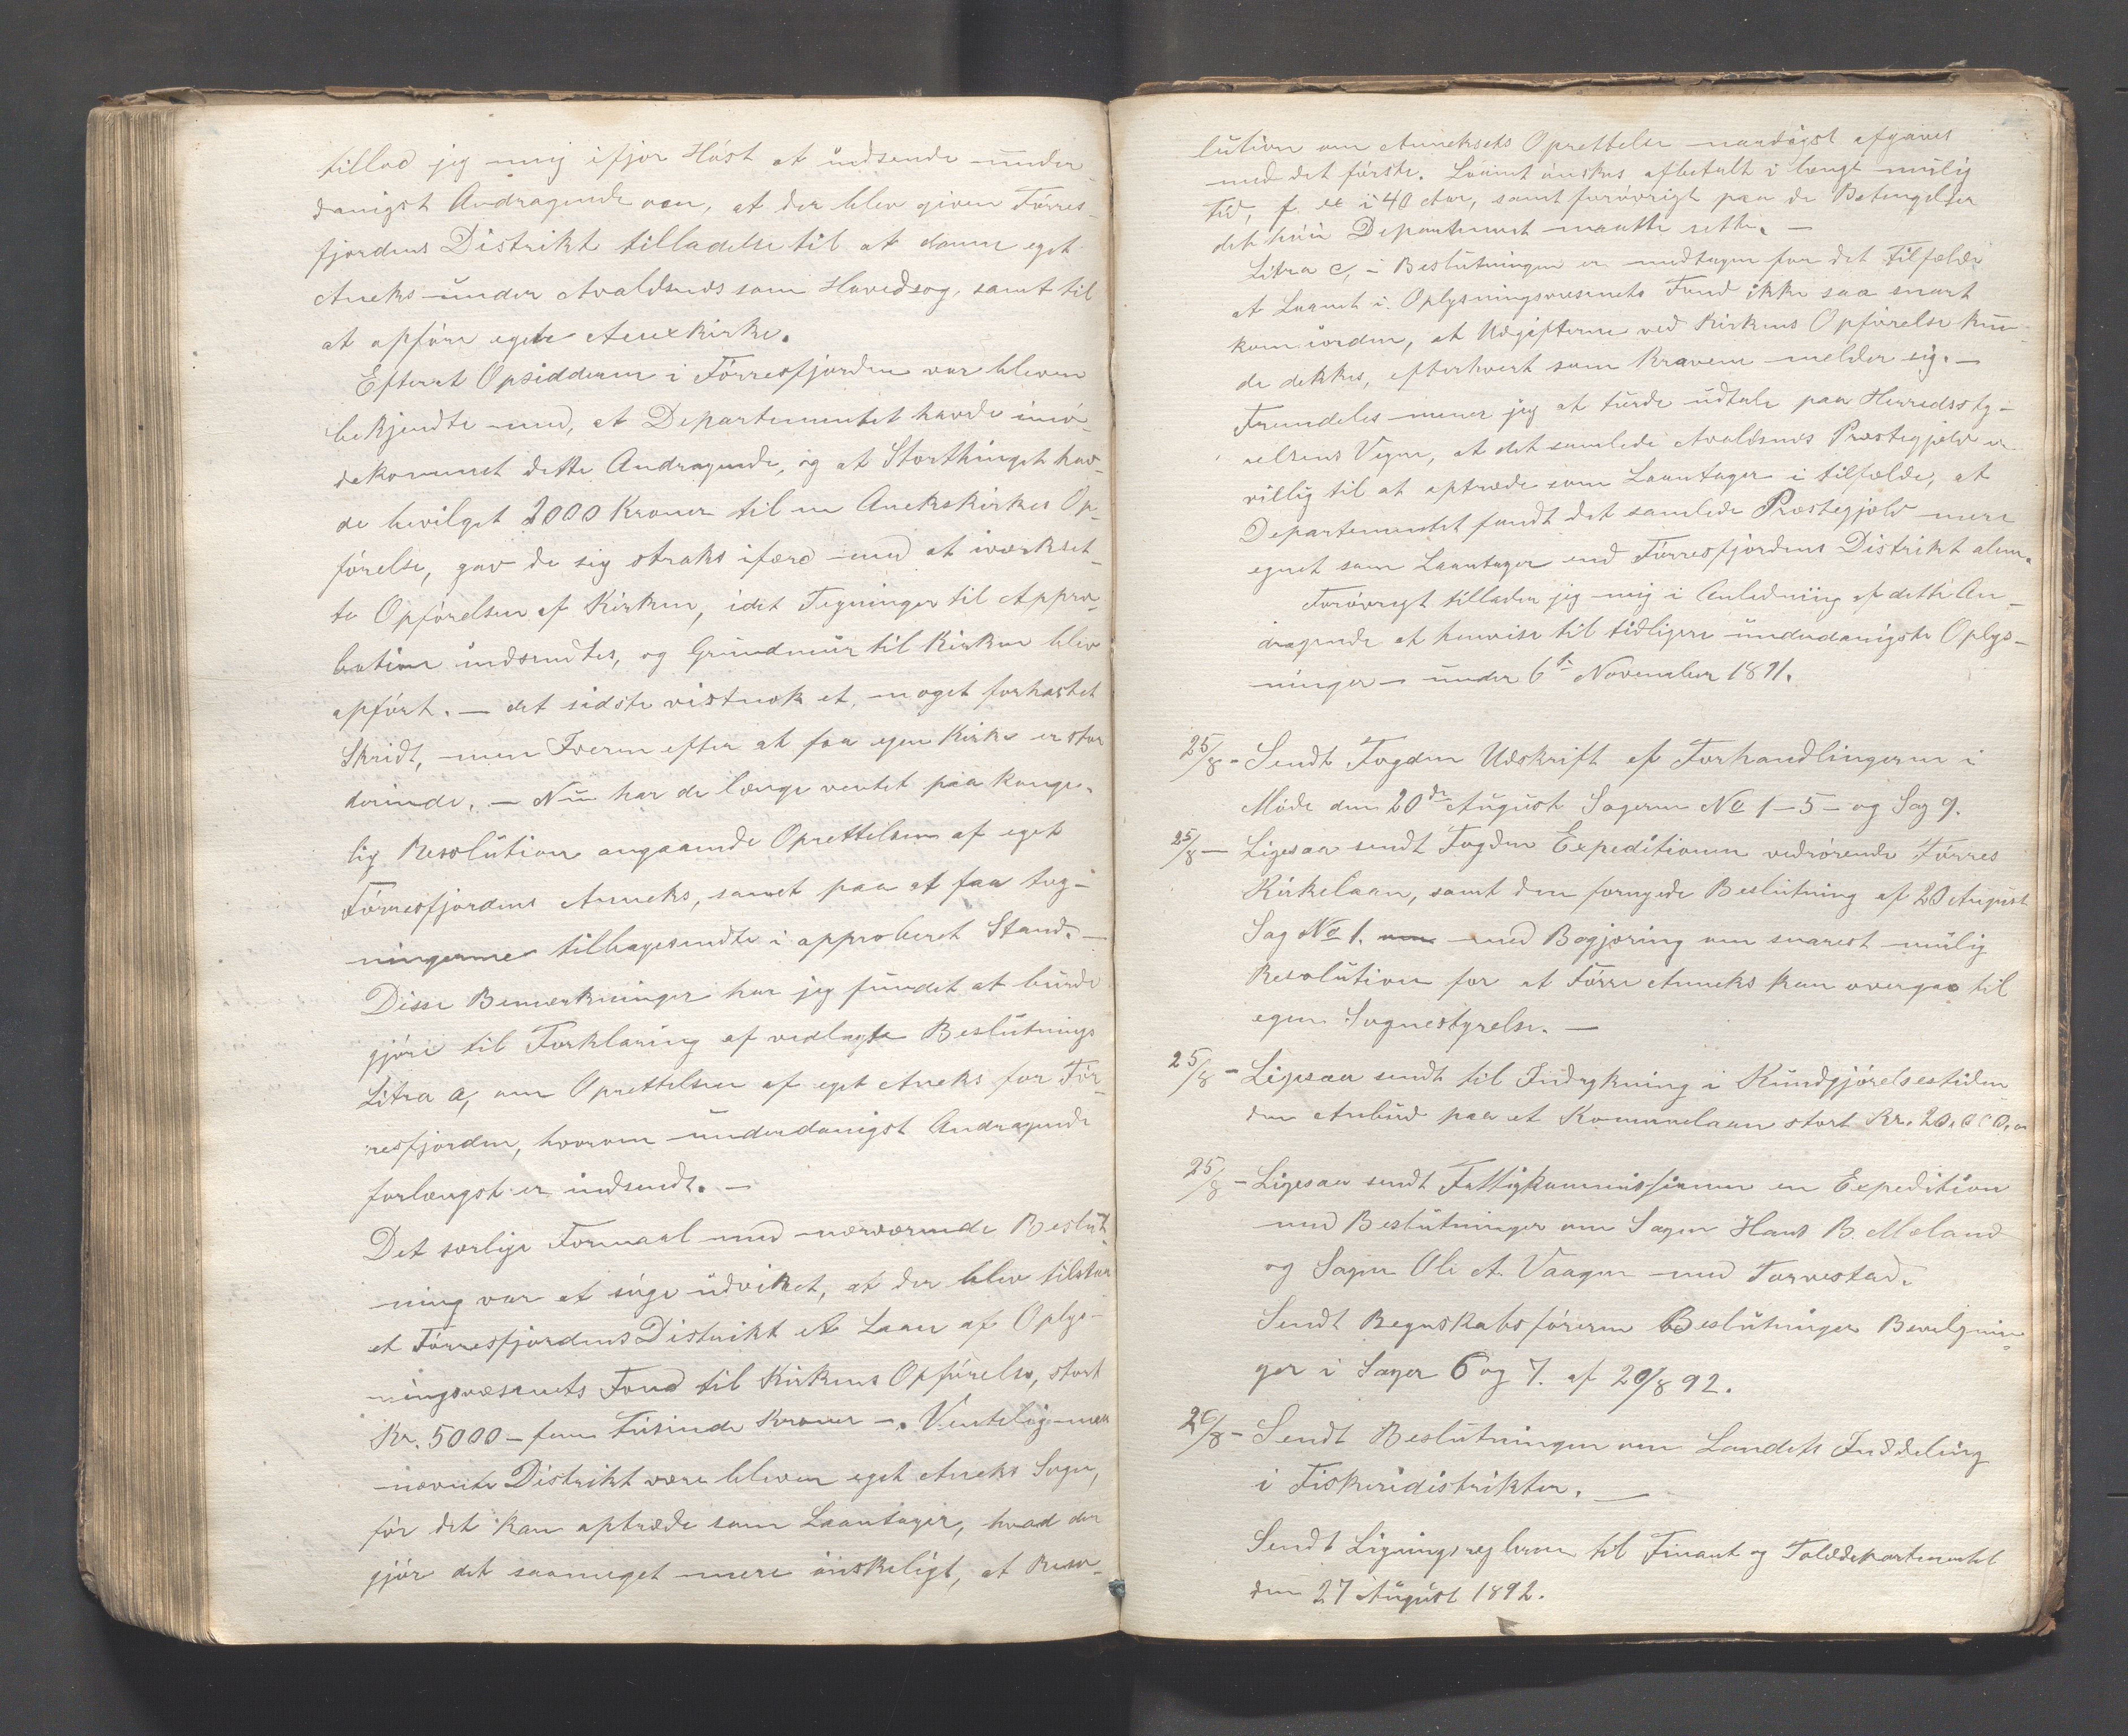 tillod jeg mig ifjor Høst at indsende under-
danigst Andragende om, at der blev given Førres-
fjordens Distrikt tilladelse til at danne eget
Aneks under Avaldsnes som Hovedsog, samt til
at opføre egen Anexkirke.
Efterat Opsidderne i Førresfjorden var bleven
bekjendte med, at Departementet havde imø-
dekommet dette Andragende, og at Storthinget hav-
de bevilget 2000 Kroner til en Anekskirkes Op-
førelse, gav de sig straks ifærd med at iværkset-
te Opførelsen af Kirken, idet Tegninger til Appro-
bation indsendtes, og Grundmur til Kirken blev
opført. — det sidste vistnok et noget forhastet
Skridt, men Iveren efter at faa egen Kirke er stor
derinde. — Nu har de længe ventet paa konge-
lig Resolution angaaende Oprettelsen af eget
Førresfjordens Anneks, samt paa at faa teg-
ningerne tilbagesendte i approberet Stand. —
Disse Bemærkninger har jeg fundet at burde
gjøre til Forklaring af vedlagte Beslutnings
Litra a, om Oprettelsen af eget Aneks for Før-
resfjorden, hvorom underdanigst Andragende
forlængst er indsendt. —
Det særlige Formaal med nærværende Beslut-
ning var at søge udvirket, at der blev tilstaa-
et Førresfjordens Distrikt et Laan af Oplys-
ningsvæsenets Fond til Kirkens Opførelse, stort
Kr. 5000 — fem Tusinde Kroner —. Ventelig maa
nævnte Distrikt være bleven eget Aneks Sogn,
før det kan optræde som Laantager, hvad der
gjør det saameget mere ønskeligt, at Reso-
lution om Anneksets Oprettelse naadigst afgaves
med det første. Laanet ønskes afbetalt i længst mulig
Tid, f. ex i 40 Aar, samt forøvrigt paa de Betingelser
det høie Departement maatte sette. —
Litra c, i Beslutningen er medtagen for det Tilfælde
at Laanet i Oplysningsvæsenets Fond ikke saa snart
kom iorden, at Udgifterne ved Kirkens Opførelse kun-
de dekkes, efterhvert som Kravene melder sig. —
Fremdeles mener jeg at turde udtale paa Herredssty-
relsens Vegne, at det samlede Avaldsnes Præstegjeld er
villig til at optræde som Laantager i tilfælde, at
Departementet fandt det samlede Præstegjeld mere
egnet som Laantager end Førresfjordens Distrikt alene.
Forøvrigt tillader jeg mig i Anledning af dette An-
dragende at henvise til tidligere underdanigste Oplys-
ninger — under 6te November 1891.
25/8 - Sendt Fogden Udskrift af Forhandlingerne i
Møde den 20de August Sagerne No 1 — 5 — og Sag 9.
25/8 — Ligesaa sendt Fogden Expeditionen vedrørende Førres
Kirkelaan, samt den fornyede Beslutning af 20 August
Sag No 1. om med Begjæring om snarest mulig
Resolution for at Førre Anneks kan overgaa til
egen Sognestyrelse. —
25/8 - Ligesaa sendt til Indrykning i Kundgjørelsestiden
den Anbud paa et Kommunelaan stort Kr. 20.000,00
25/8 - Ligesaa sendt Fattigkommissionen en Expedition
med Beslutninger om Sagen Hans B. Mæland
og Sagen Ole A. Vaagen med Torvestad.
Sendt Regnskabsføreren Beslutninger Bevilgnin-
ger i Sager 6 og 7. af 20/8 92.
26/8 - Sendt Beslutningen om Landets Inddeling
i Fiskeridistrikter. —
Sendt Ligningsreglerne til Finant og Tolddepartementet
den 27 August 1892.